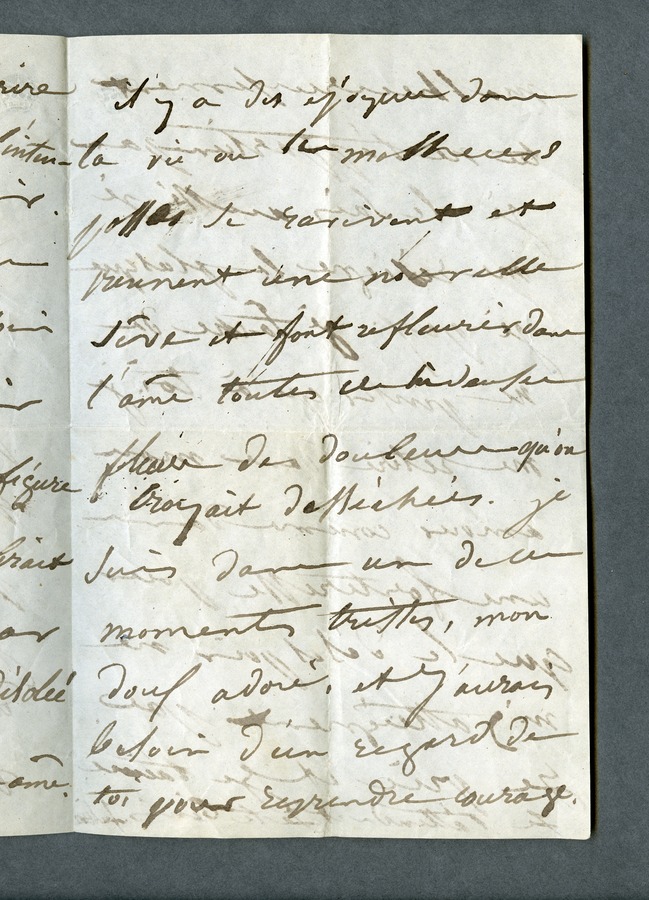 rire
l'inten-
ir
ir
figure
brait
désolé
âme.
il y a des époques dans
la vie où les malheurs
passés se ravivent et
prennent une nouvelle
sève et font refleurir dans
l'âme toutes ces
des douleurs qu'on
croyait desséchées. je
suis dans un de ces
moments tristes, mon
doux adoré, et j'aurais
besoin d'un regard de
toi pour reprendre courage.